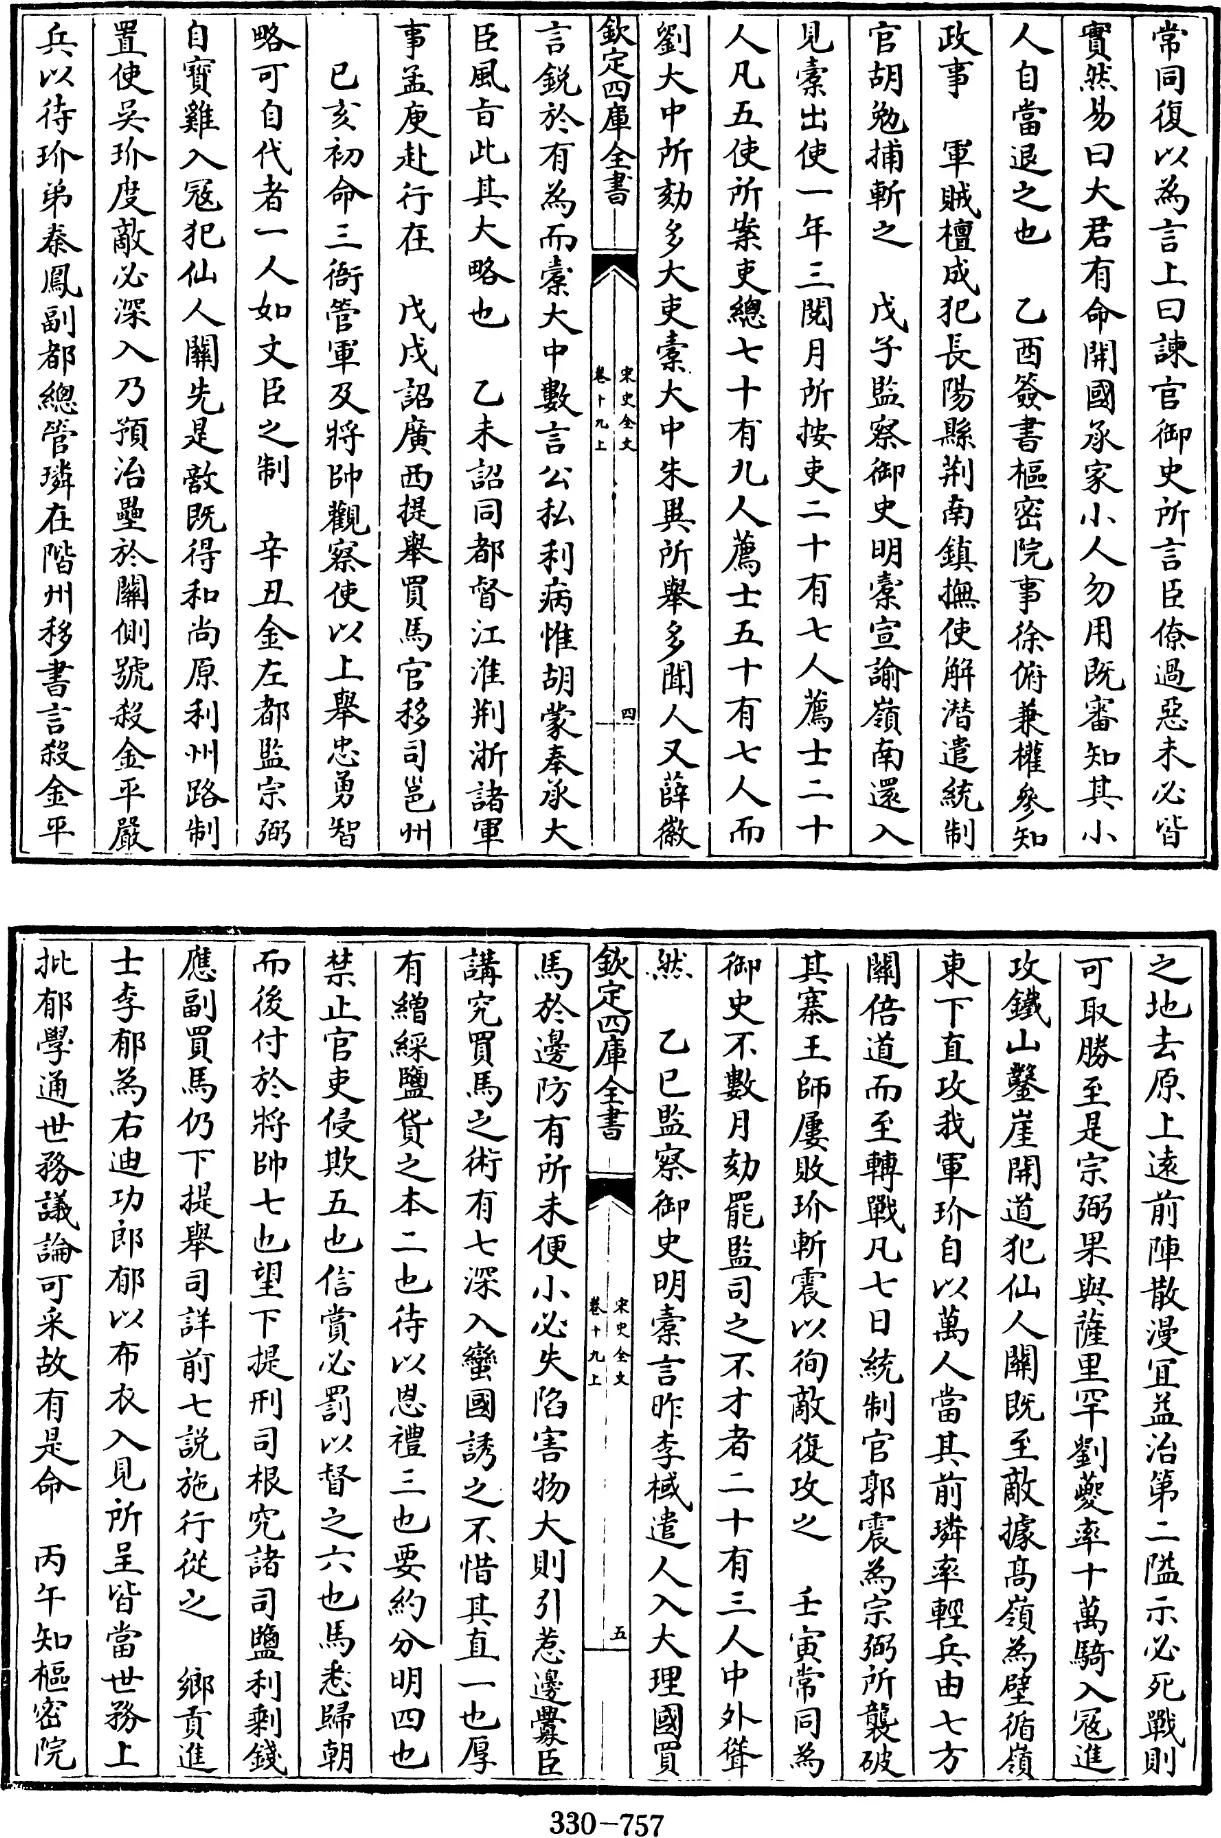 常同復以為言上曰諫官御史所言臣僚過惡未必皆
實然易曰大君有命開國承家小人勿用既審知其小
人自當退之也　乙酉簽書樞密院事徐俯兼權參知
政事　軍賊檀成犯長陽縣荆南鎮撫使解潜遣統制
官胡勉捕斬之　戊子監察御史明槖宣諭嶺南還入
見槖出使一年三閱月所按吏二十有七人薦士二十
人凡五使所案吏總七十有九人薦士五十有七人而
劉大中所劾多大吏槖大中朱異所舉多聞人又薛徽
欽定四庫全書
宋史全文
卷十九上
四
言鋭於有為而槖大中數言公私利病惟胡蒙奉承大
臣風旨此其大略也　乙未詔同都督江淮荆浙諸軍
事孟庾赴行在　戊戌詔廣西提舉買馬官移司邕州
己亥初命三衙管軍及將帥觀察使以上舉忠勇智
略可自代者一人如文臣之制　辛丑金左都監宗弼
自寶雞入冦犯仙人關先是敵既得和尚原利州路制
置使吳玠度敵必深入乃預治壘於關側號殺金平嚴
兵以待玠弟秦鳳副都總管璘在階州移書言殺金平
之地去原上遠前陣散漫宜益治第二隘示必死戰則
可取勝至是宗弼果與薩里罕劉夔率十萬騎入冦進
攻鐵山鑿崖開道犯仙人關既至敵據高嶺為壁循嶺
東下直攻我軍玠自以萬人當其前璘率輕兵由七方
關倍道而至轉戰凡七日統制官郭震為宗弼所襲破
其寨王師屢敗玠斬震以徇敵復攻之　壬寅常同為
御史不數月劾罷監司之不才者二十有三人中外聳
然　乙巳監察御史明槖言昨李棫遣人入大理國買
欽定四庫全書
宋史全文
卷十九上
五
馬於邊防有所未便小必失陷害物大則引惹邊釁臣
講究買馬之術有七深入蠻國誘之不惜其直一也厚
有繒綵鹽貨之本二也待以恩禮三也要約分明四也
禁止官吏侵欺五也信賞必罰以督之六也馬悉歸朝
而後付於將帥七也望下提刑司根究諸司鹽利剩錢
應副買馬仍下提舉司詳前七説施行從之　鄉貢進
士李郁為右迪功郎郁以布衣入見所呈皆當世務上
批郁學通世務議論可采故有是命　丙午知樞密院
330-757